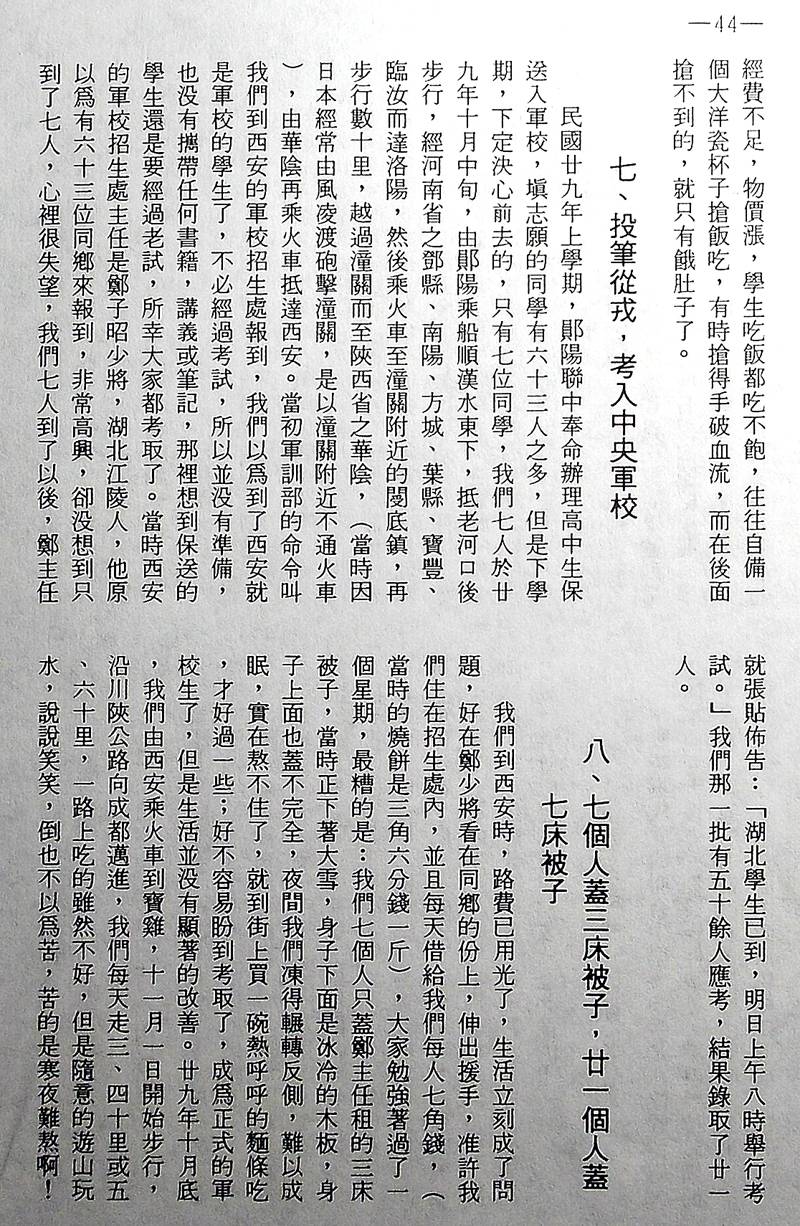 —44—
經費不足，物價漲，學生吃飯都吃不飽，往往自備一
個大洋瓷杯子搶飯吃，有時搶得手破血流，而在後面
搶不到的，就只有餓肚子了。
七、投筆從戎，考入中央軍校
民國廿九年上學期，鄖陽聯中奉命辦理高中生保
送入軍校，塡志願的同學有六十三人之多，但是下學
期，下定決心前去的，只有七位同學，我們七人於廿
九年十月中旬，由鄖陽乘船順漢水東下，抵老河口後
步行，經河南省之鄧縣、南陽、方城、葉縣、寶豐、
臨汝而達洛陽，然後乘火車至潼關附近的閿底鎮，再
步行數十里，越過潼關而至陝西省之華陰，（當時因
日本經常由風凌渡砲擊潼關，是以潼關附近不通火車
），由華陰再乘火車抵達西安。當初軍訓部的命令叫
我們到西安的軍校招生處報到，我們以爲到了西安就
是軍校的學生了，不必經過考試，所以並没有準備，
也没有攜帶任何書籍，講義或筆記，那裡想到保送的
學生還是要經過老試，所幸大家都考取了。當時西安
的軍校招生處主任是鄭子昭少將，湖北江陵人，他原
以爲有六十三位同鄉來報到，非常高興，卻没想到只
到了七人，心裡很失望，我們七人到了以後，鄭主任
就張貼佈告：「湖北學生已到，明日上午八時舉行考
試。」我們那一批有五十餘人應考，結果錄取了廿一
人。
八、七個人蓋三床被子，廿一個人蓋
七床被子
我們到西安時，路費已用光了，生活立刻成了問
題，好在鄭少將看在同鄉的份上，伸出援手，准許我
們住在招生處內，並且每天借給我們每人七角錢，（
當時的燒餅是三角六分錢一斤），大家勉強著過了一
個星期，最糟的是：我們七個人只蓋鄭主任租的三床
被子，當時正下著大雪，身子下面是冰冷的木板，身
子上面也蓋不完全，夜間我們凍得輾轉反側，難以成
眠，實在熬不住了，就到街上買一碗熱呼呼的麵條吃
，才好過一些；好不容易盼到考取了，成爲正式的軍
校生了，但是生活並没有顯著的改善。廿九年十月底
，我們由西安乘火車到寶雞，十一月一日開始步行，
沿川陝公路向成都邁進，我們每天走三、四十里或五
、六十里，一路上吃的雖然不好，但是隨意的遊山玩
水，說說笑笑，倒也不以爲苦，苦的是寒夜難熬啊！